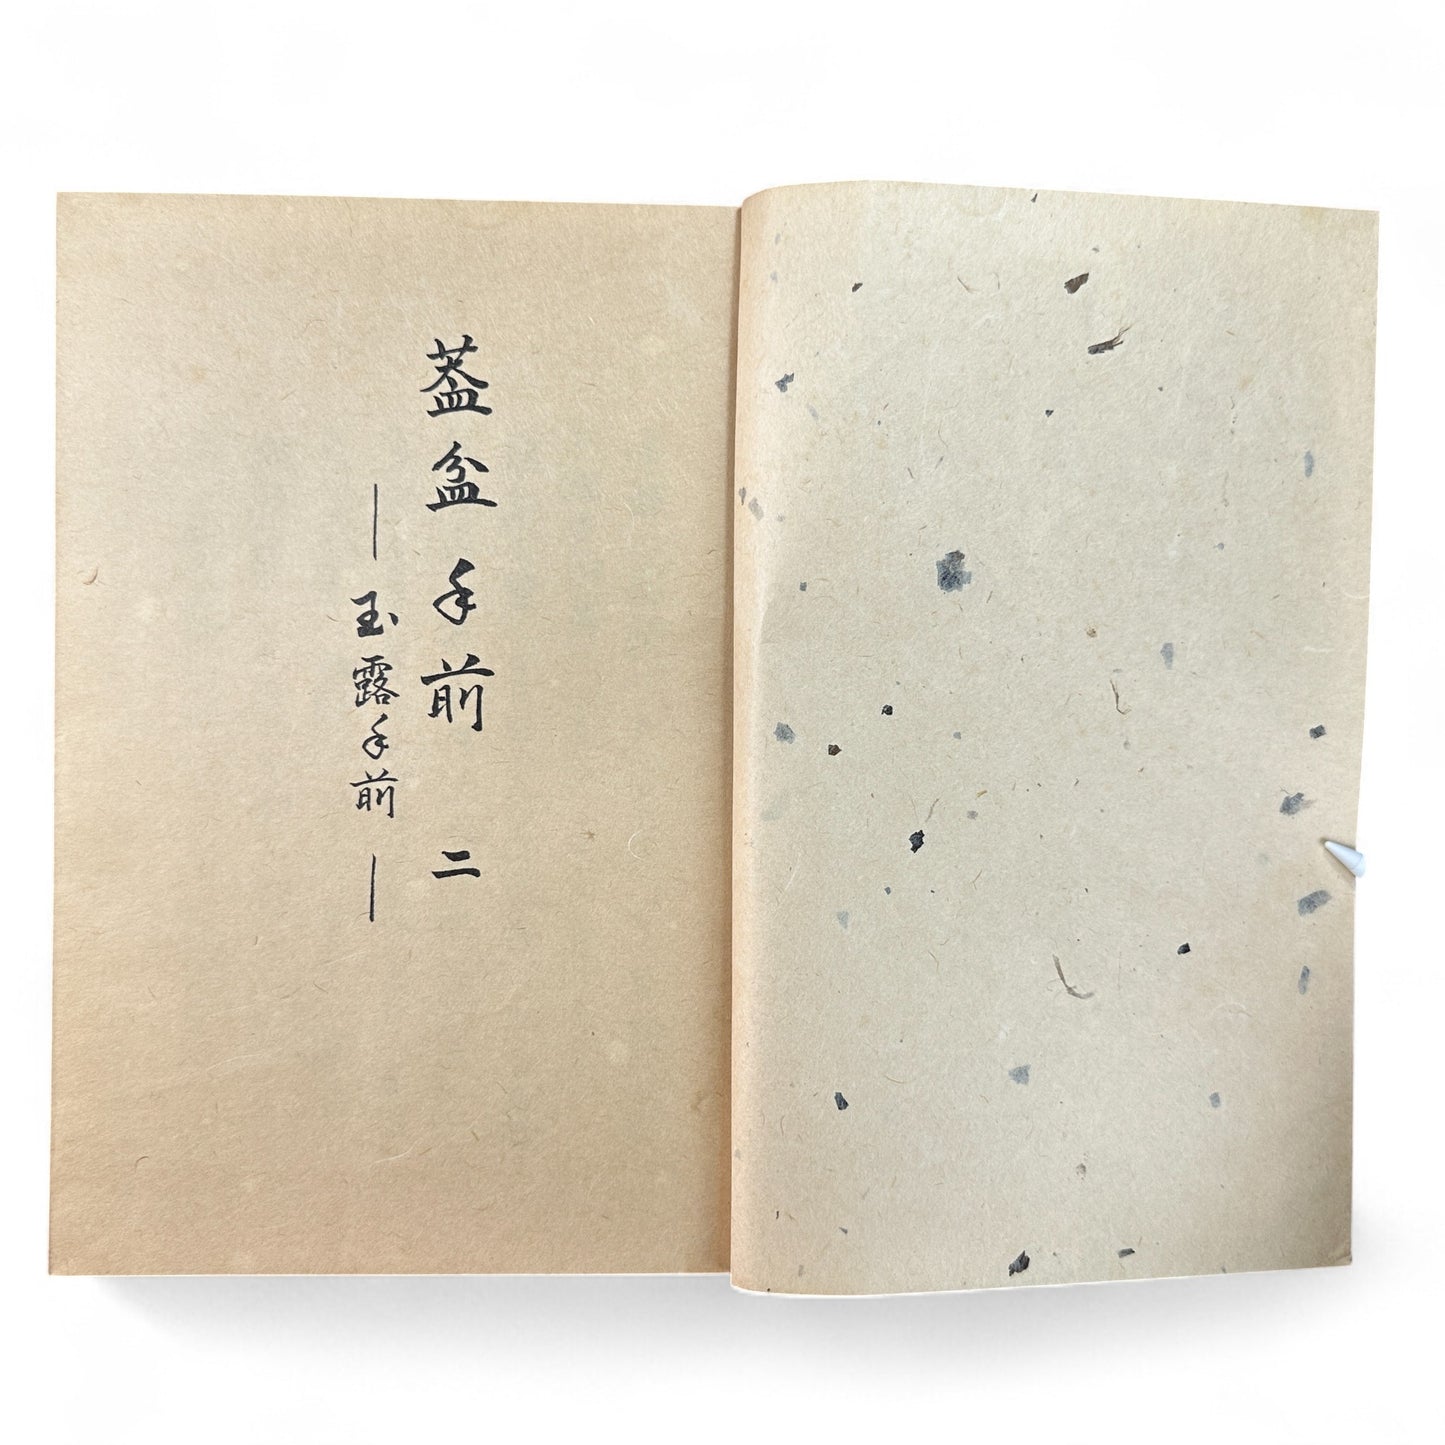 葢盆手前 二
―玉露手前―